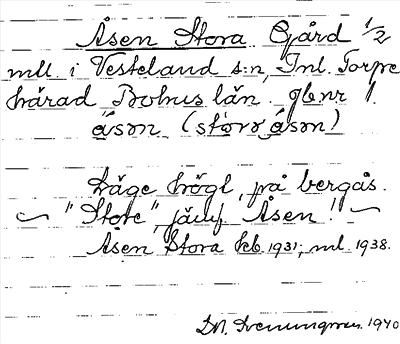 Åsen Stora Gård 1/2
mtl. i Vesteland s:n, Inl. Torpe
härad Bohus län. gbnr 1.
åsən (stórə åsən)
Läge högl. på bergås.
"Stora", jämf. Åsen!
Åsen Stora Kb. 1931; ml. 1938.
1940